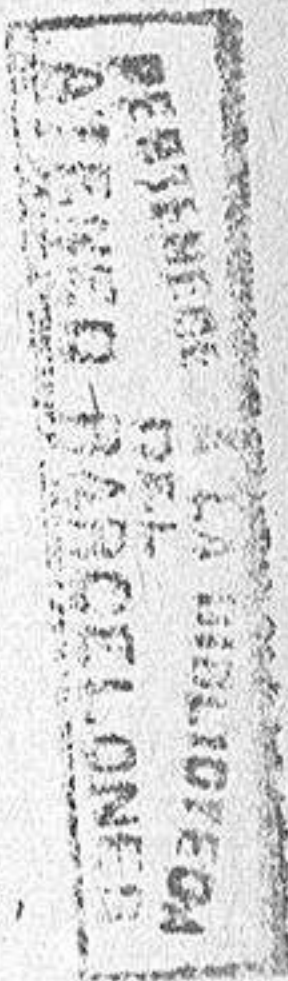 PERTENECE A LA BIBLIOTECA
DEL
ATENEO BARCELONES